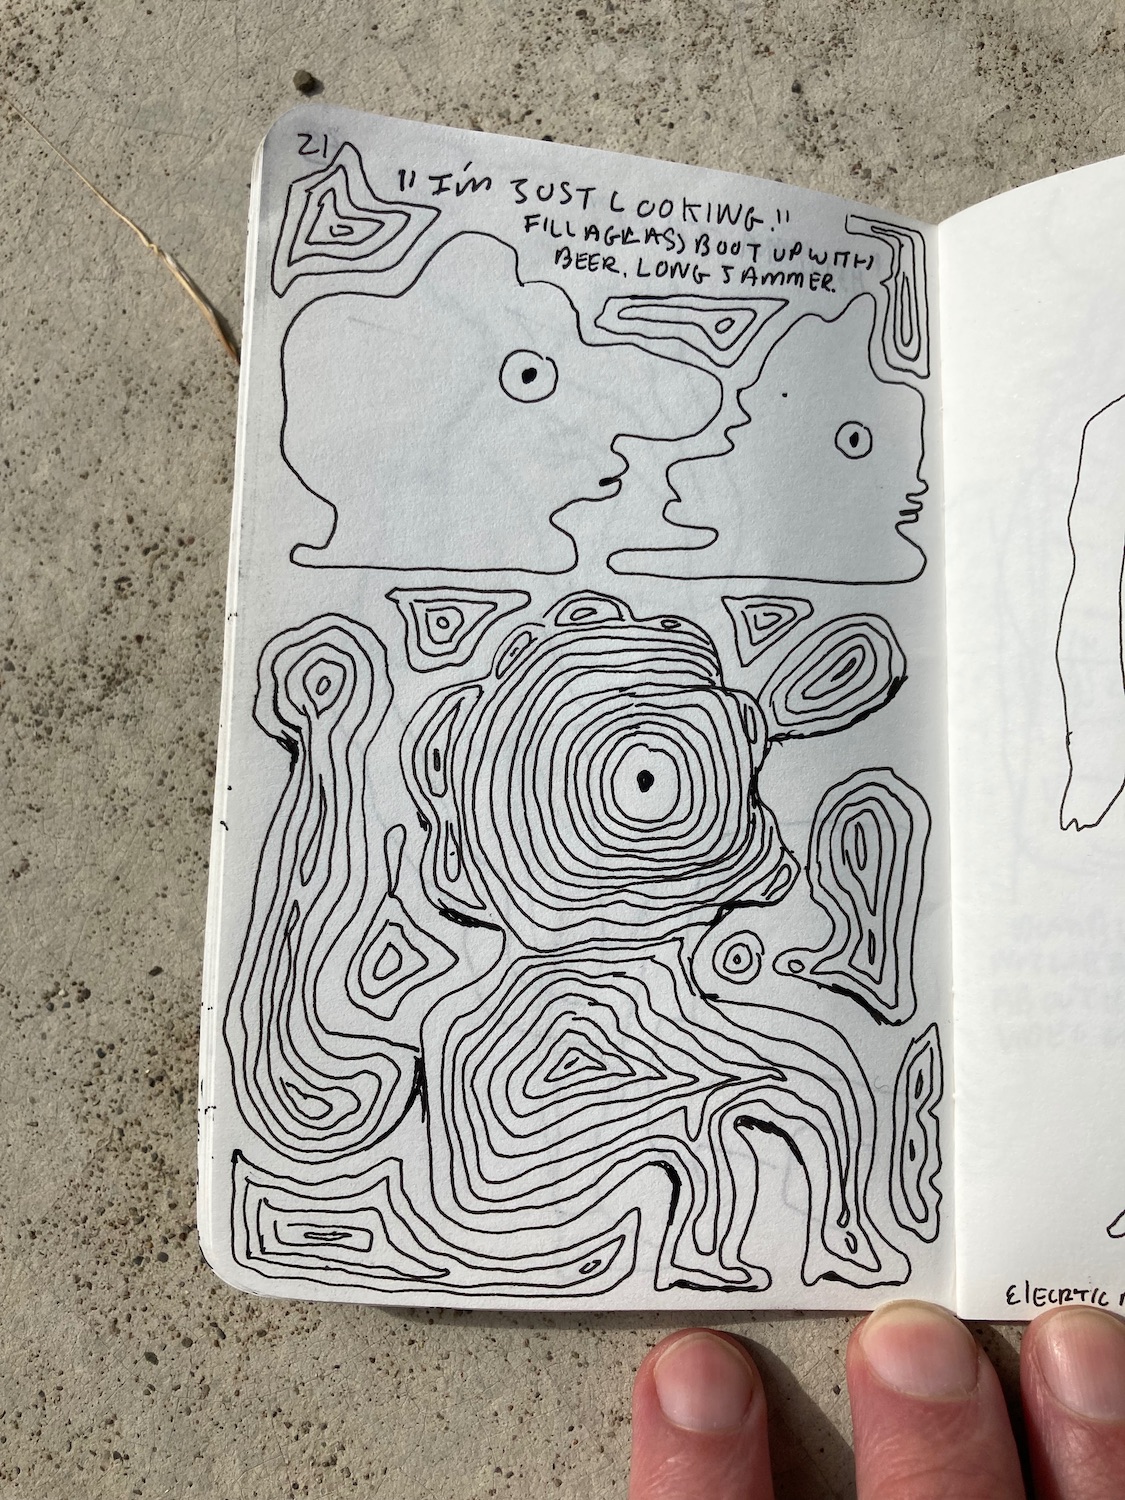 21
"I'm JUST LOOKING!"
FILL A GLASS BOOT UP WITH
BEER. LONG JAMMER.
ElECRTIC